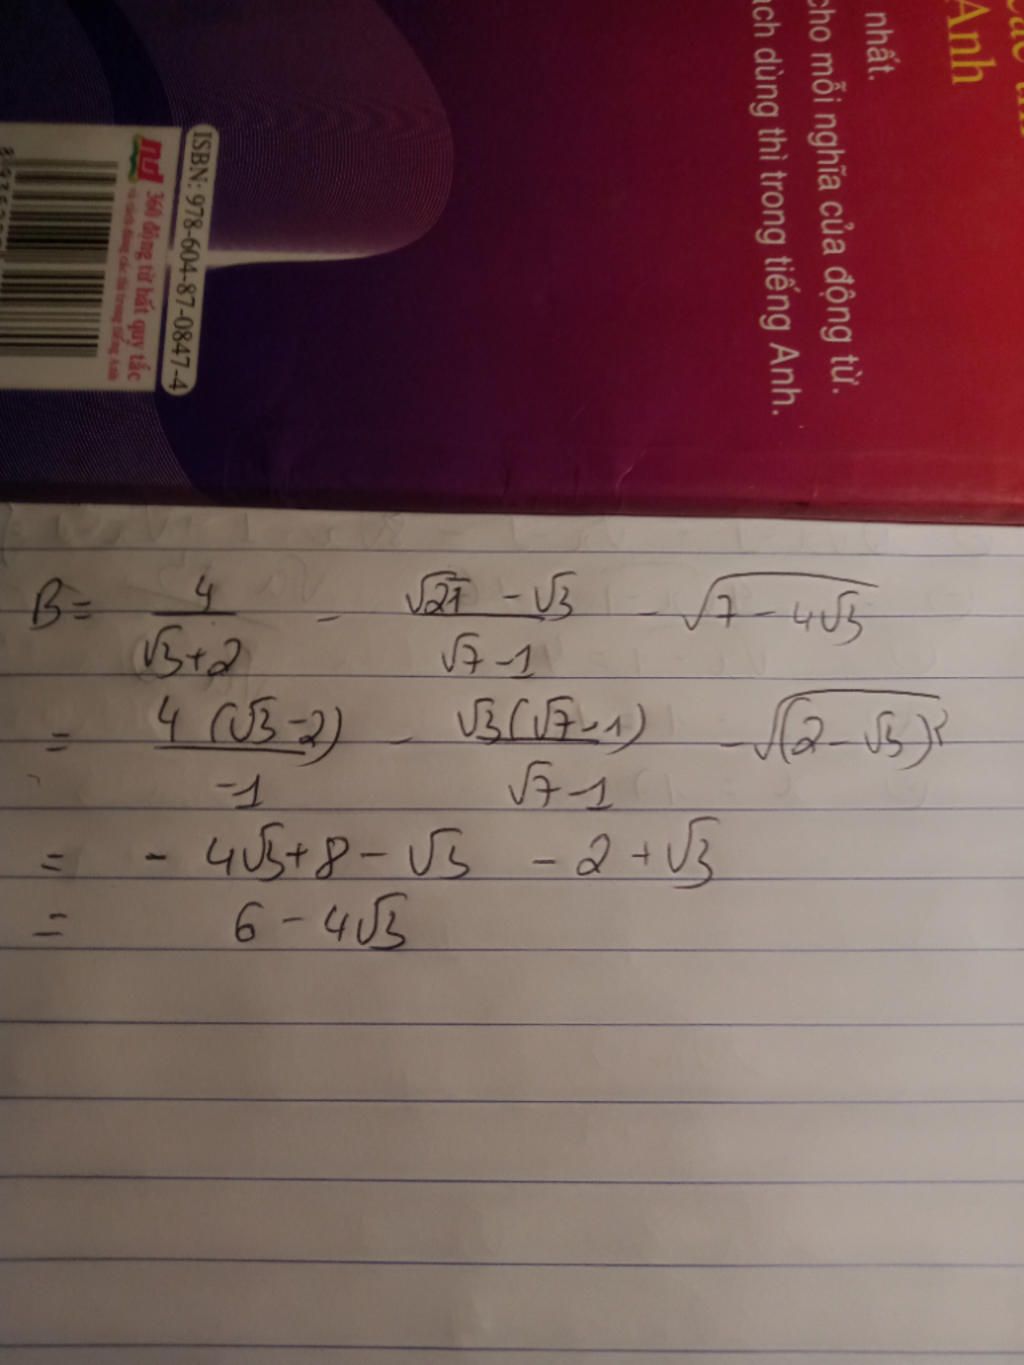 Anh
nhất.
cho mỗi nghĩa của động từ.
ách dùng thì trong tiếng Anh.
ISBN: 978-604-87-0847-4
360 động từ bất quy tắc
và cách dùng các thì trong tiếng Anh
B = 4/(√3+2) - (√21 - √3)/(√7 - 1) - √(7 - 4√3)
= 4(√3 - 2)/(-1) - √3(√7 - 1)/(√7 - 1) - √((2 - √3)²)
= - 4√3 + 8 - √3 - 2 + √3
= 6 - 4√3